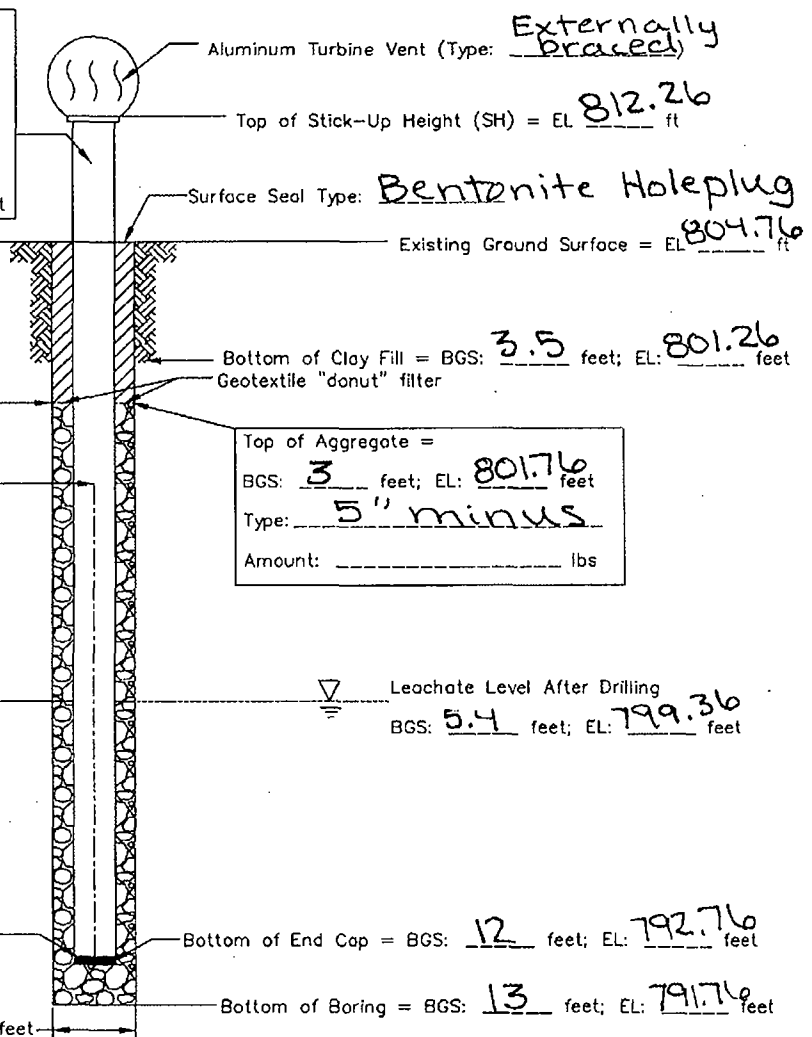 Aluminum Turbine Vent (Type: Externally braced)
Top of Stick-Up Height (SH) = EL 812.26 ft
t
Surface Seal Type: Bentonite Holeplug
Existing Ground Surface = EL 804.76 ft
Bottom of Clay Fill = BGS: 3.5 feet; EL: 801.26 feet
Geotextile "donut" filter
Top of Aggregate =
BGS: 3 feet; EL: 801.76 feet
Type: 5" minus
Amount: ____________ lbs
Leachate Level After Drilling
BGS: 5.4 feet; EL: 799.36 feet
Bottom of End Cap = BGS: 12 feet; EL: 792.76 feet
Bottom of Boring = BGS: 13 feet; EL: 791.76 feet
feet